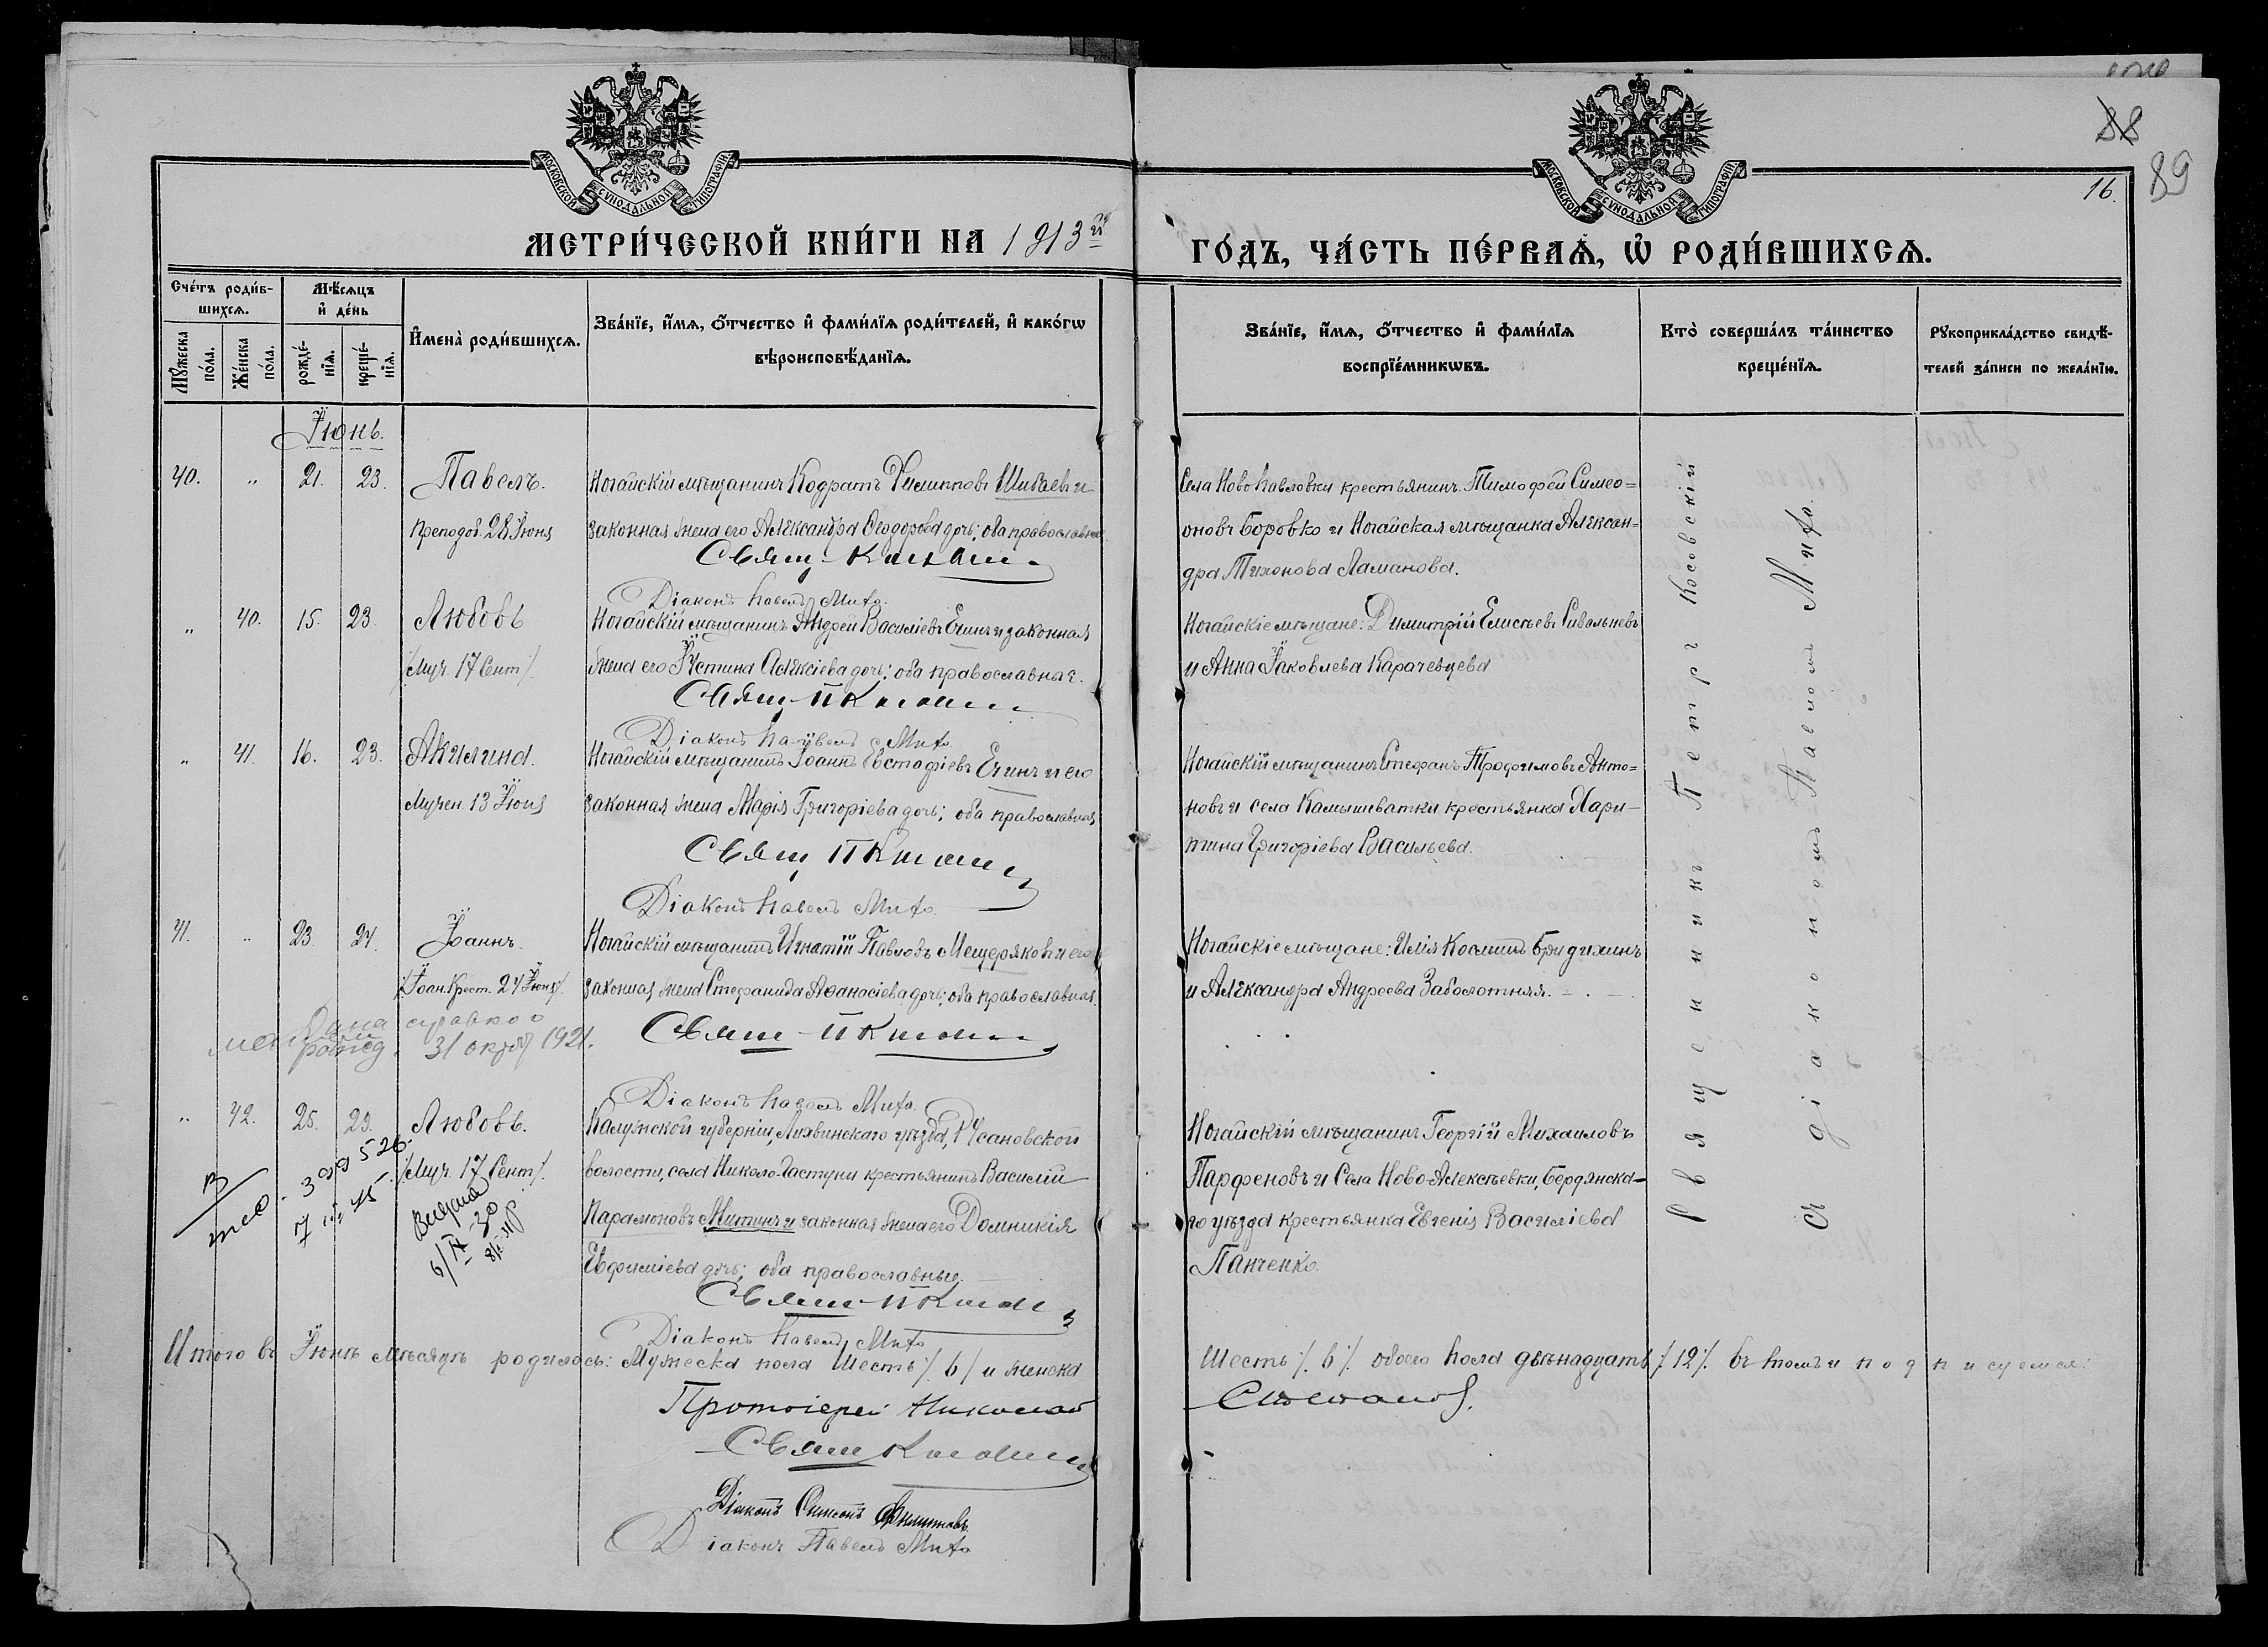 88
89
16.
МОСКОВСКОЙ СѴНОДАЛЬНОЙ ТИПОГРАФІИ
МОСКОВСКОЙ СѴНОДАЛЬНОЙ ТИПОГРАФІИ
МЕТРИ́ЧЕСКОЙ КНИ́ГИ НА 1913й
ГО́ДЪ, ЧА́СТЬ ПЕ́РВАѦ, Ѿ РОДИ́ВШИХСѦ.
Сче́тъ роди́в-
шихсѧ.
Мѣ́сѧцъ
и҆ де́нь
Мꙋ́жеска по́ла.
Же́нска по́ла.
рожде́-
нїѧ.
креще́-
нїѧ.
И҆мена̀ роди́вшихсѧ.
Зва́нїе, и҆́мѧ, ѻ҆́тчество и҆ фами́лїѧ роди́телей, и҆ како́гѡ
вѣроисповѣ́данїѧ.
Зва́нїе, и҆́мѧ, ѻ҆́тчество и҆ фами́лїѧ
воспрїе́мникѡвъ.
Кто̀ соверша́лъ та́инство
креще́нїѧ.
Рꙋкоприкла́дство свидѣ́-
телей за́писи по жела́нїю.
Іюнь.
40. „ 21. 23. Павелъ.
Преподоб. 28 Іюня
Ногайскій мѣщанинъ Кодратъ Филипповъ Шиваевъ и
законная жена его Александра Ѳеодорова дочь; оба православные
Свящ.
Діаконъ Павелъ Михо.
Села Ново Павловки крестьянинъ Тимофей Симео=
оновъ Боровко и Ногайская мѣщанка Алексан-
дра Тихонова Ламанова.
„ 40. 15. 23. Любовь
/Муч. 17 Сент/.
Ногайскій мѣщанинъ Андрей Василіевъ Егинъ и законная
жена его Іустина Алексіева дочь; оба православные.
Свящ. П
Діаконъ Павелъ Михо.
Ногайскіе мѣщане: Димитрій Елисѣевъ Сивальневъ
и Анна Іаковлева Карачевцева
„ 41. 16. 23. Акилина.
Мучен. 13 Іюня
Ногайскій мѣщанинъ Іоаннъ Евстафіевъ Егинъ и его
законная жена Марія Григоріева дочь; оба православная
Свящ П
Діаконъ Павелъ Михо.
Ногайскій мѣщанинъ Стефанъ Трофимовъ Анто=
новъ и села Камышеватки крестьянка Хари-
тина Григоріева Васильева.
41. „ 23. 24. Іоаннъ.
/Іоан. Крест. 24 Іюня/.
Ногайскій мѣщанинъ Игнатій Павловъ Мещеряковъ и его
законная жена Стефанида Аѳанасіева дочь; оба православная.
Дана справка о
рожд. 31 октяб 1921.
Свящ П
Діаконъ Павелъ Михо.
Ногайскіе мѣщане: Илія Косьминъ Бридихинъ
и Александра Андреева Заболотняя.
„ 42. 25. 29. Любовь.
/Муч. 17 Сент/.
Калужской губерніи, Лихвинскаго уѣзда, Русановской
волости, села Николо-Гастуни крестьянинъ Василій
Парамоновъ Митинъ и законная жена его Домникія
Евфиміева дочь; оба православные.
Свящ П
Діаконъ Павелъ Михо
Ногайскій мѣщанинъ Георгій Михаиловъ
Парфеновъ и Села Ново-Алексѣевки, Бердянска-
го уѣзда крестьянка Евгенія Василіева
Панченко.
Священникъ Петръ Косовскій
съ діакономъ Павломъ Михо.
Итого въ Іюнѣ мѣсяцѣ родилось: Мужеска пола Шесть /6/ и женска
Шесть /6/. обоего пола двѣнадцать /12/. въ томъ и подписуемся:
Протоіерей Николай
Свящ
Діаконъ Симеонъ Филипповъ.
Діаконъ Павелъ Михо